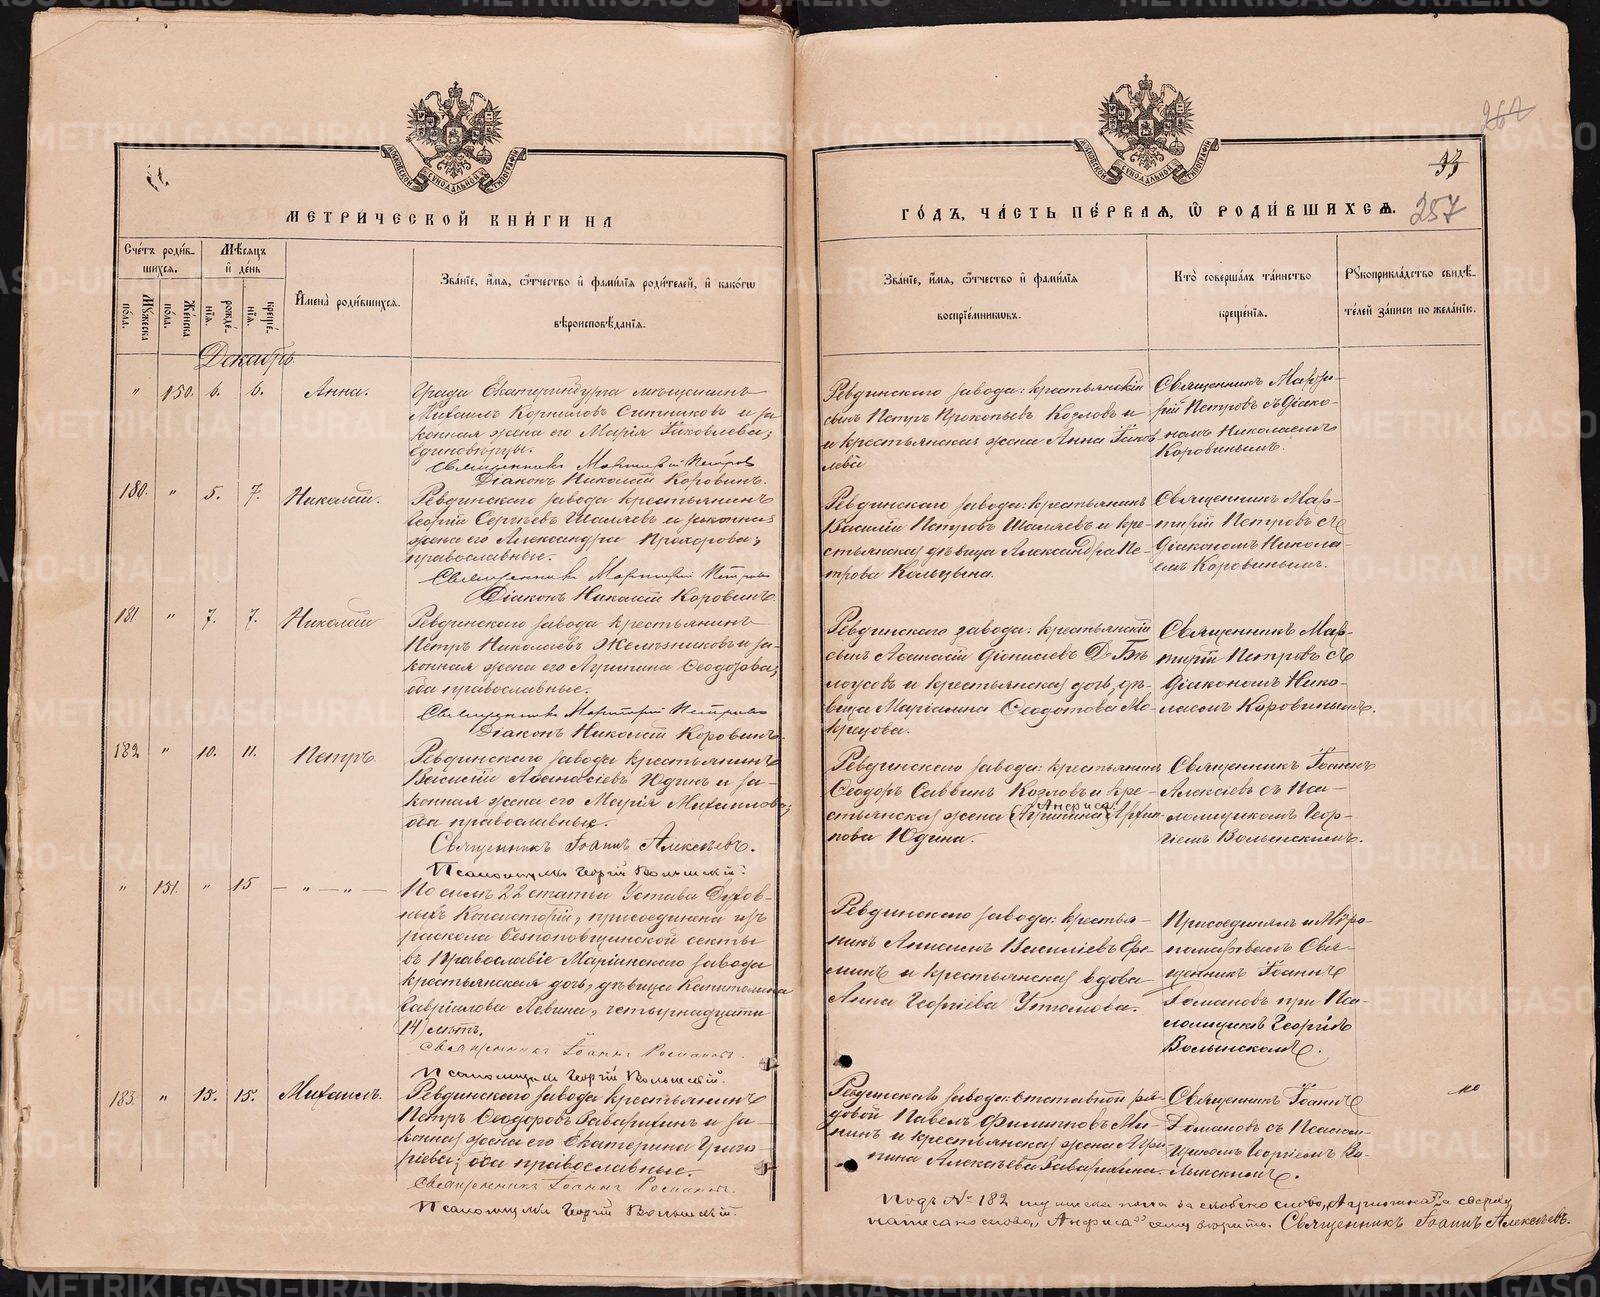 МЕТРИЧЕСКОЙ КНИГИ НА
Счетъ родив-
шихся.
Мѣсяцъ
и день
Мужеска пола.
Женска пола.
рожде-
нія.
креще-
нія.
Имена родившихся.
Званіе, имя, отчество и фамилія родителей, и какого
вѣроисповѣданія.
Декабрь
" 150. 6. 6. Анна.
Града Екатеринбурга мѣщанинъ
Михаилъ Корниловъ Ситниковъ и за-
конная жена его Марія Іаковлева;
единовѣрцы.
Священникъ Мартирій Петровъ
Діаконъ Николай Коровинъ.
180. " 5. 7. Николай.
Ревдинскаго завода крестьянинъ
Георгій Сергѣевъ Шаляевъ и законная
жена его Александра Прохорова;
православные.
Священникъ Мартирій Петровъ
Діаконъ Николай Коровинъ.
181 " 7. 7. Николай
Ревдинскаго завода крестьянинъ
Петръ Николаевъ Желѣзниковъ и за-
конная жена его Агрипина Ѳеодорова;
оба православные.
Священникъ Мартирій Петровъ
Діаконъ Николай Коровинъ.
182 " 10. 11. Петръ.
Ревдинскаго завода крестьянинъ
Василій Аѳанасіевъ Юдинъ и за-
конная жена его Марія Михаилова;
оба православные.
Священникъ Іоаннъ Алексѣевъ.
Псаломщикъ Георгій Волынскій.
" 151. " 15 — " — " —
По силѣ 22 статьи Устава Духов-
ныхъ Консисторій, присоединена изъ
раскола безпоповщинской секты
въ Православіе Маріинскаго завода
крестьянская дочь, дѣвица Капитолина
Гавріилова Левина, четырнадцати
(14) лѣтъ.
Священникъ Іоаннъ Романовъ.
Псаломщикъ Георгій Волынскій.
183. " 15. 15. Михаилъ.
Ревдинскаго завода крестьянинъ
Петръ Ѳеодоровъ Заварихинъ и за-
конная жена его Екатерина Григо-
ріева; оба православные.
Священникъ Іоаннъ Романовъ.
Псаломщикъ Георгій Волынскій.
257
ГОДЪ, ЧАСТЬ ПЕРВАЯ, Ѡ РОДИВШИХСЯ.
Званіе, имя, отчество и фамилія
воспріемниковъ.
Кто совершалъ таинство
крещенія.
Рукоприкладство свидѣ-
телей записи по желанію.
Ревдинскаго завода: крестьянскій
сынъ Петръ Прокопьевъ Козловъ и
и крестьянская жена Анна Іаков-
лева
Священникъ Марти-
рій Петровъ съ діако-
номъ Николаемъ
Коровинымъ.
Ревдинскаго завода: крестьянинъ
Василій Петровъ Шаляевъ и кре-
стьянская дѣвица Александра Пе-
трова Кольцына.
Священникъ Мар-
тирій Петровъ съ
діакономъ Никола-
емъ Коровинымъ.
Ревдинскаго завода: крестьянскій
сынъ Аѳанасій Діонисіевъ Бѣ-
лоусовъ и крестьянская дочь, дѣ-
вица Маріамна Ѳеодотова Мо-
крецова.
Священникъ Мар-
тирій Петровъ съ
діакономъ Нико-
лаемъ Коровинымъ.
Ревдинскаго завода: крестьянинъ
Ѳеодоръ Саввинъ Козловъ и кре-
Анфиса
стьянская жена (Агрипина) Архип-
пова Юдина.
Священникъ Іоаннъ
Алексѣевъ съ Пса-
ломщикомъ Геор-
гіемъ Волынскимъ.
Ревдинскаго завода: крестья-
нинъ Василіевъ Ѳо-
минъ и крестьянская вдова
Анна Георгіева Утюмова.
Присоединялъ и Мѵро-
помазывалъ Свя-
щенникъ Іоаннъ
Романовъ при Пса-
ломщикѣ Георгіѣ
Волынскомъ.
Ревдинскаго завода: отставной ря-
довой Павелъ Филипповъ Ми-
нинъ и крестьянская жена Агри-
пина Алексѣева Заварихина.
Священникъ Іоаннъ
Романовъ съ Псалом-
щикомъ Георгіемъ Во-
лынскимъ.
Подъ № 182 мужеска пола за скобою слово "Агрипина", а сверху
написано слово "Анфиса" сему вѣрить. Священникъ Іоаннъ Алексѣевъ.